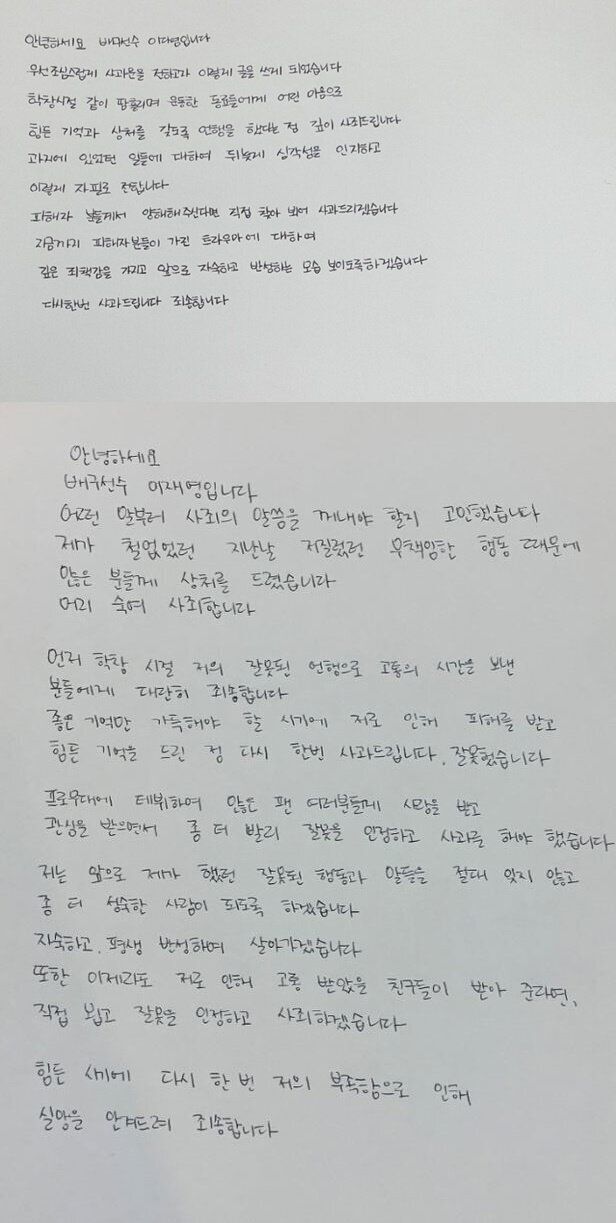 안녕하세요 배구선수 이다영입니다
우선조심스럽게 사과문을 전하고자 이렇게 글을 쓰게 되었습니다
학창시절 같이 땀흘리며 운동한 동료들에게 어린 마음으로
힘든 기억과 상처를 갖도록 언행을 했다는 점 깊이 사죄드립니다
과거에 있었던 일들에 대하여 뒤늦게 심각성을 인지하고
이렇게 자필로 전합니다
피해자 분들께서 양해해주신다면 직접 찾아 뵈어 사과드리겠습니다
지금까지 피해자분들이 가진 트라우마에 대하여
깊은 죄책감을 가지고 앞으로 자숙하고 반성하는 모습 보이도록하겠습니다
다시한번 사과드립니다 죄송합니다
안녕하세요
배구선수 이재영입니다
어떤 말부터 사죄의 말씀을 꺼내야 할지 고민했습니다
제가 철없었던 지난날 저질렀던 무책임한 행동 때문에
많은 분들께 상처를 드렸습니다
머리 숙여 사죄합니다
먼저 학창 시절 저의 잘못된 언행으로 고통의 시간을 보낸
분들에게 대단히 죄송합니다
좋은 기억만 가득해야 할 시기에 저로 인해 피해를 받고
힘든 기억을 드린 점 다시 한번 사과드립니다. 잘못했습니다
프로무대에 데뷔하여 많은 팬 여러분들께 사랑을 받고
관심을 받으면서 좀 더 빨리 잘못을 인정하고 사과를 해야 했습니다
저는 앞으로 제가 했던 잘못된 행동과 말들을 절대 잊지 않고
좀 더 성숙한 사람이 되도록 하겠습니다
자숙하고. 평생 반성하며 살아가겠습니다
또한 이제라도 저로 인해 고통 받았을 친구들이 받아 준다면,
직접 뵙고 잘못을 인정하고 사죄하겠습니다
힘든 시기에 다시 한 번 저의 부족함으로 인해
실망을 안겨드려 죄송합니다